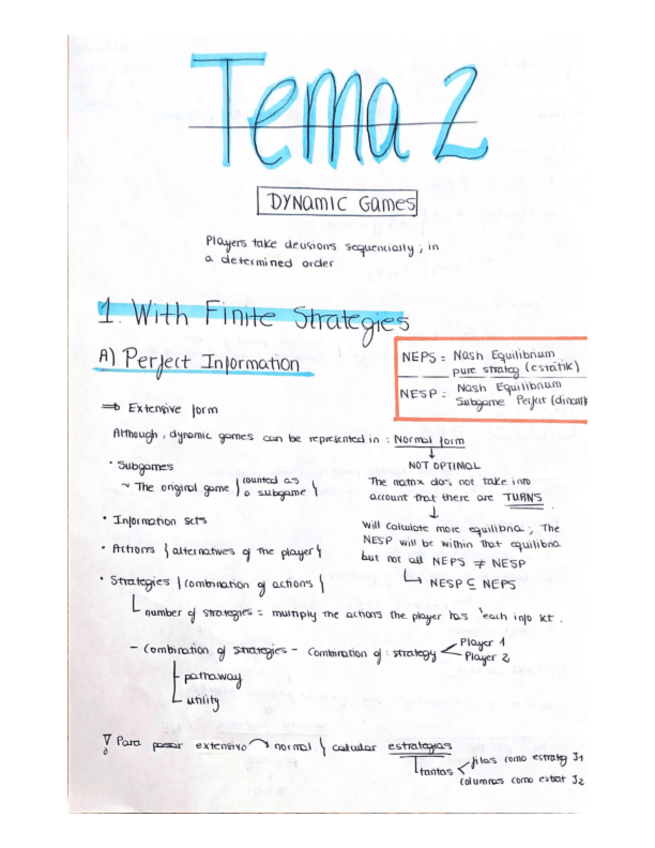 Tema 2
DYNAMIC Games
Players take decisions sequencially ; in
a determined order
1. With Finite Strategies
A) Perfect Information
NEPS : Nash Equilibrium
pure strateg (estatik)
NESP : Nash Equilibrium
Subgame Perfect (dinamik
⇒ Extensive form
Although, dynamic games can be represented in : Normal form
↓
NOT OPTIMAL
The matrix does not take into
account that there are TURNS
↓
will calculate more equilibria ; The
NESP will be within that equilibria
but not all NEPS ≠ NESP
↳ NESP ⊆ NEPS
• Subgames
~ The original game { counted as
a subgame }
• Information sets
• Actions { alternatives of the player }
• Strategies { combination of actions }
number of strategies = multiply the actions the player has 'each info set.
- Combination of strategies - combination of : strategy < Player 1
Player 2
pathaway
utility
Para pasar extensivo normal { calcular estrategias
tantas < filas como estrateg J1
columnas como estrat J2